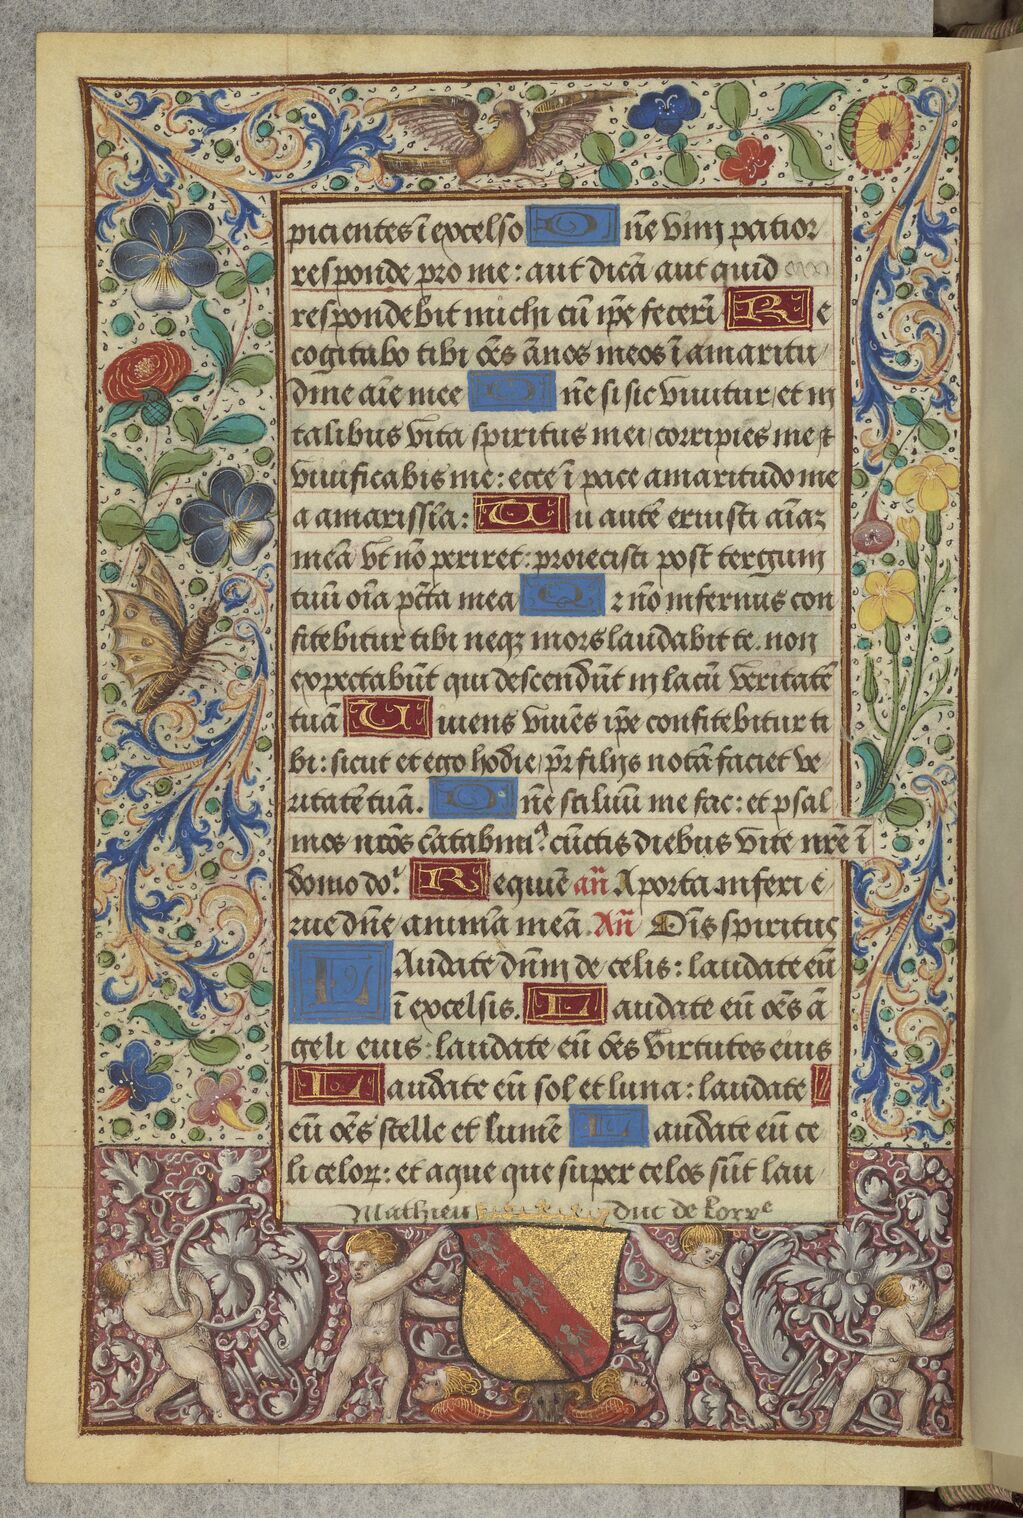 picientes ī excelso D ñe vim patior
responde pro me: aut dicā aut quid
respondebit michi cū ip̄e fecerī R e
cogitabo tibi oēs ānos meos ī amaritu
dine aīe mee D ñe si sic vivitur et in
talibus vita spiritus mei corripies me et
vivificabis me: ecce ī pace amaritudo me
a amarissīa: T u autē eruisti aīaz
meā vt nō periret: proiecisti post tergum
tuū oīa pctā mea Q ꝛ nō infernus con
fitebitur tibi neqꝫ mors laudabit te. non
expectabūt qui descendūt in lacū veritatē
tuā V ivens vivēs ip̄e confitebitur ti
bi: sicut et ego hodie pr̄ filijs notā faciet ve
ritatē tuā. D ñe scī luū me fac: et psal
mos nr̄os cātabimꝰ cūctis diebus vite nr̄e ī
domo do. R equiē an̄ A porta inferi e
rue dn̄e animā meā. An̄ Oīs spiritus
L Audate dn̄m de celis: laudate eū
ī excelsis. L audate eū oēs ā
geli eius: laudate eū oēs virtutes eius
L audate eū sol et luna: laudate
eū oēs stelle et lumē L audate eū ce
li celoꝝ: et aque que super celos sūt lau
Mathieu duc de Lorre